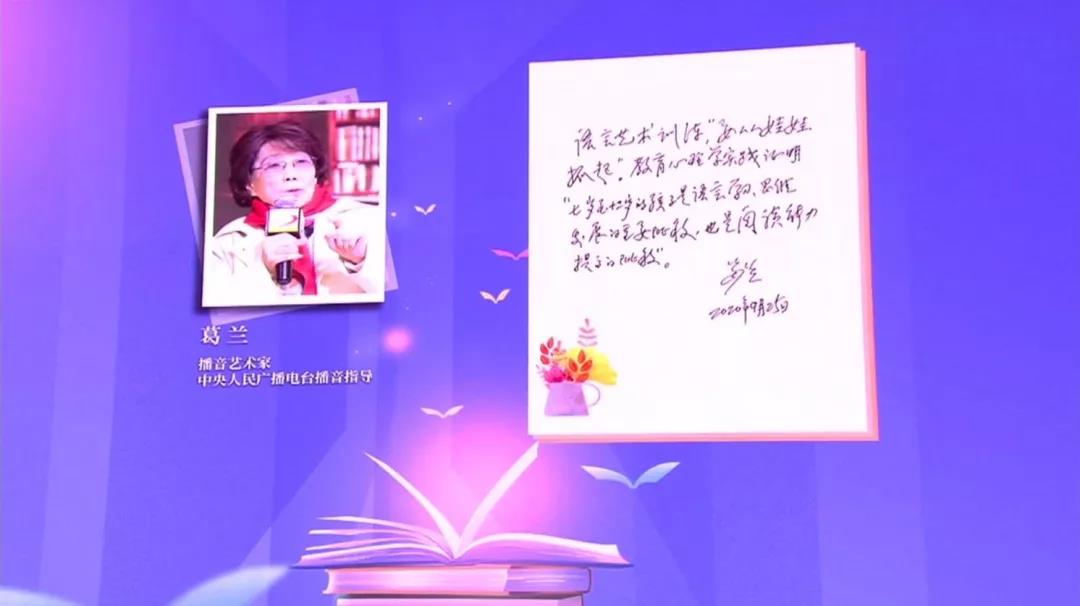 葛兰
播音艺术家
中央人民广播电台播音指导
语言艺术训练，“要从娃娃
抓起”。教育心理学实践证明
“七岁至十二岁的孩子是语言
发展的主要阶段，也是阅读能力
提高的阶段”。
葛兰
2020年9月25日